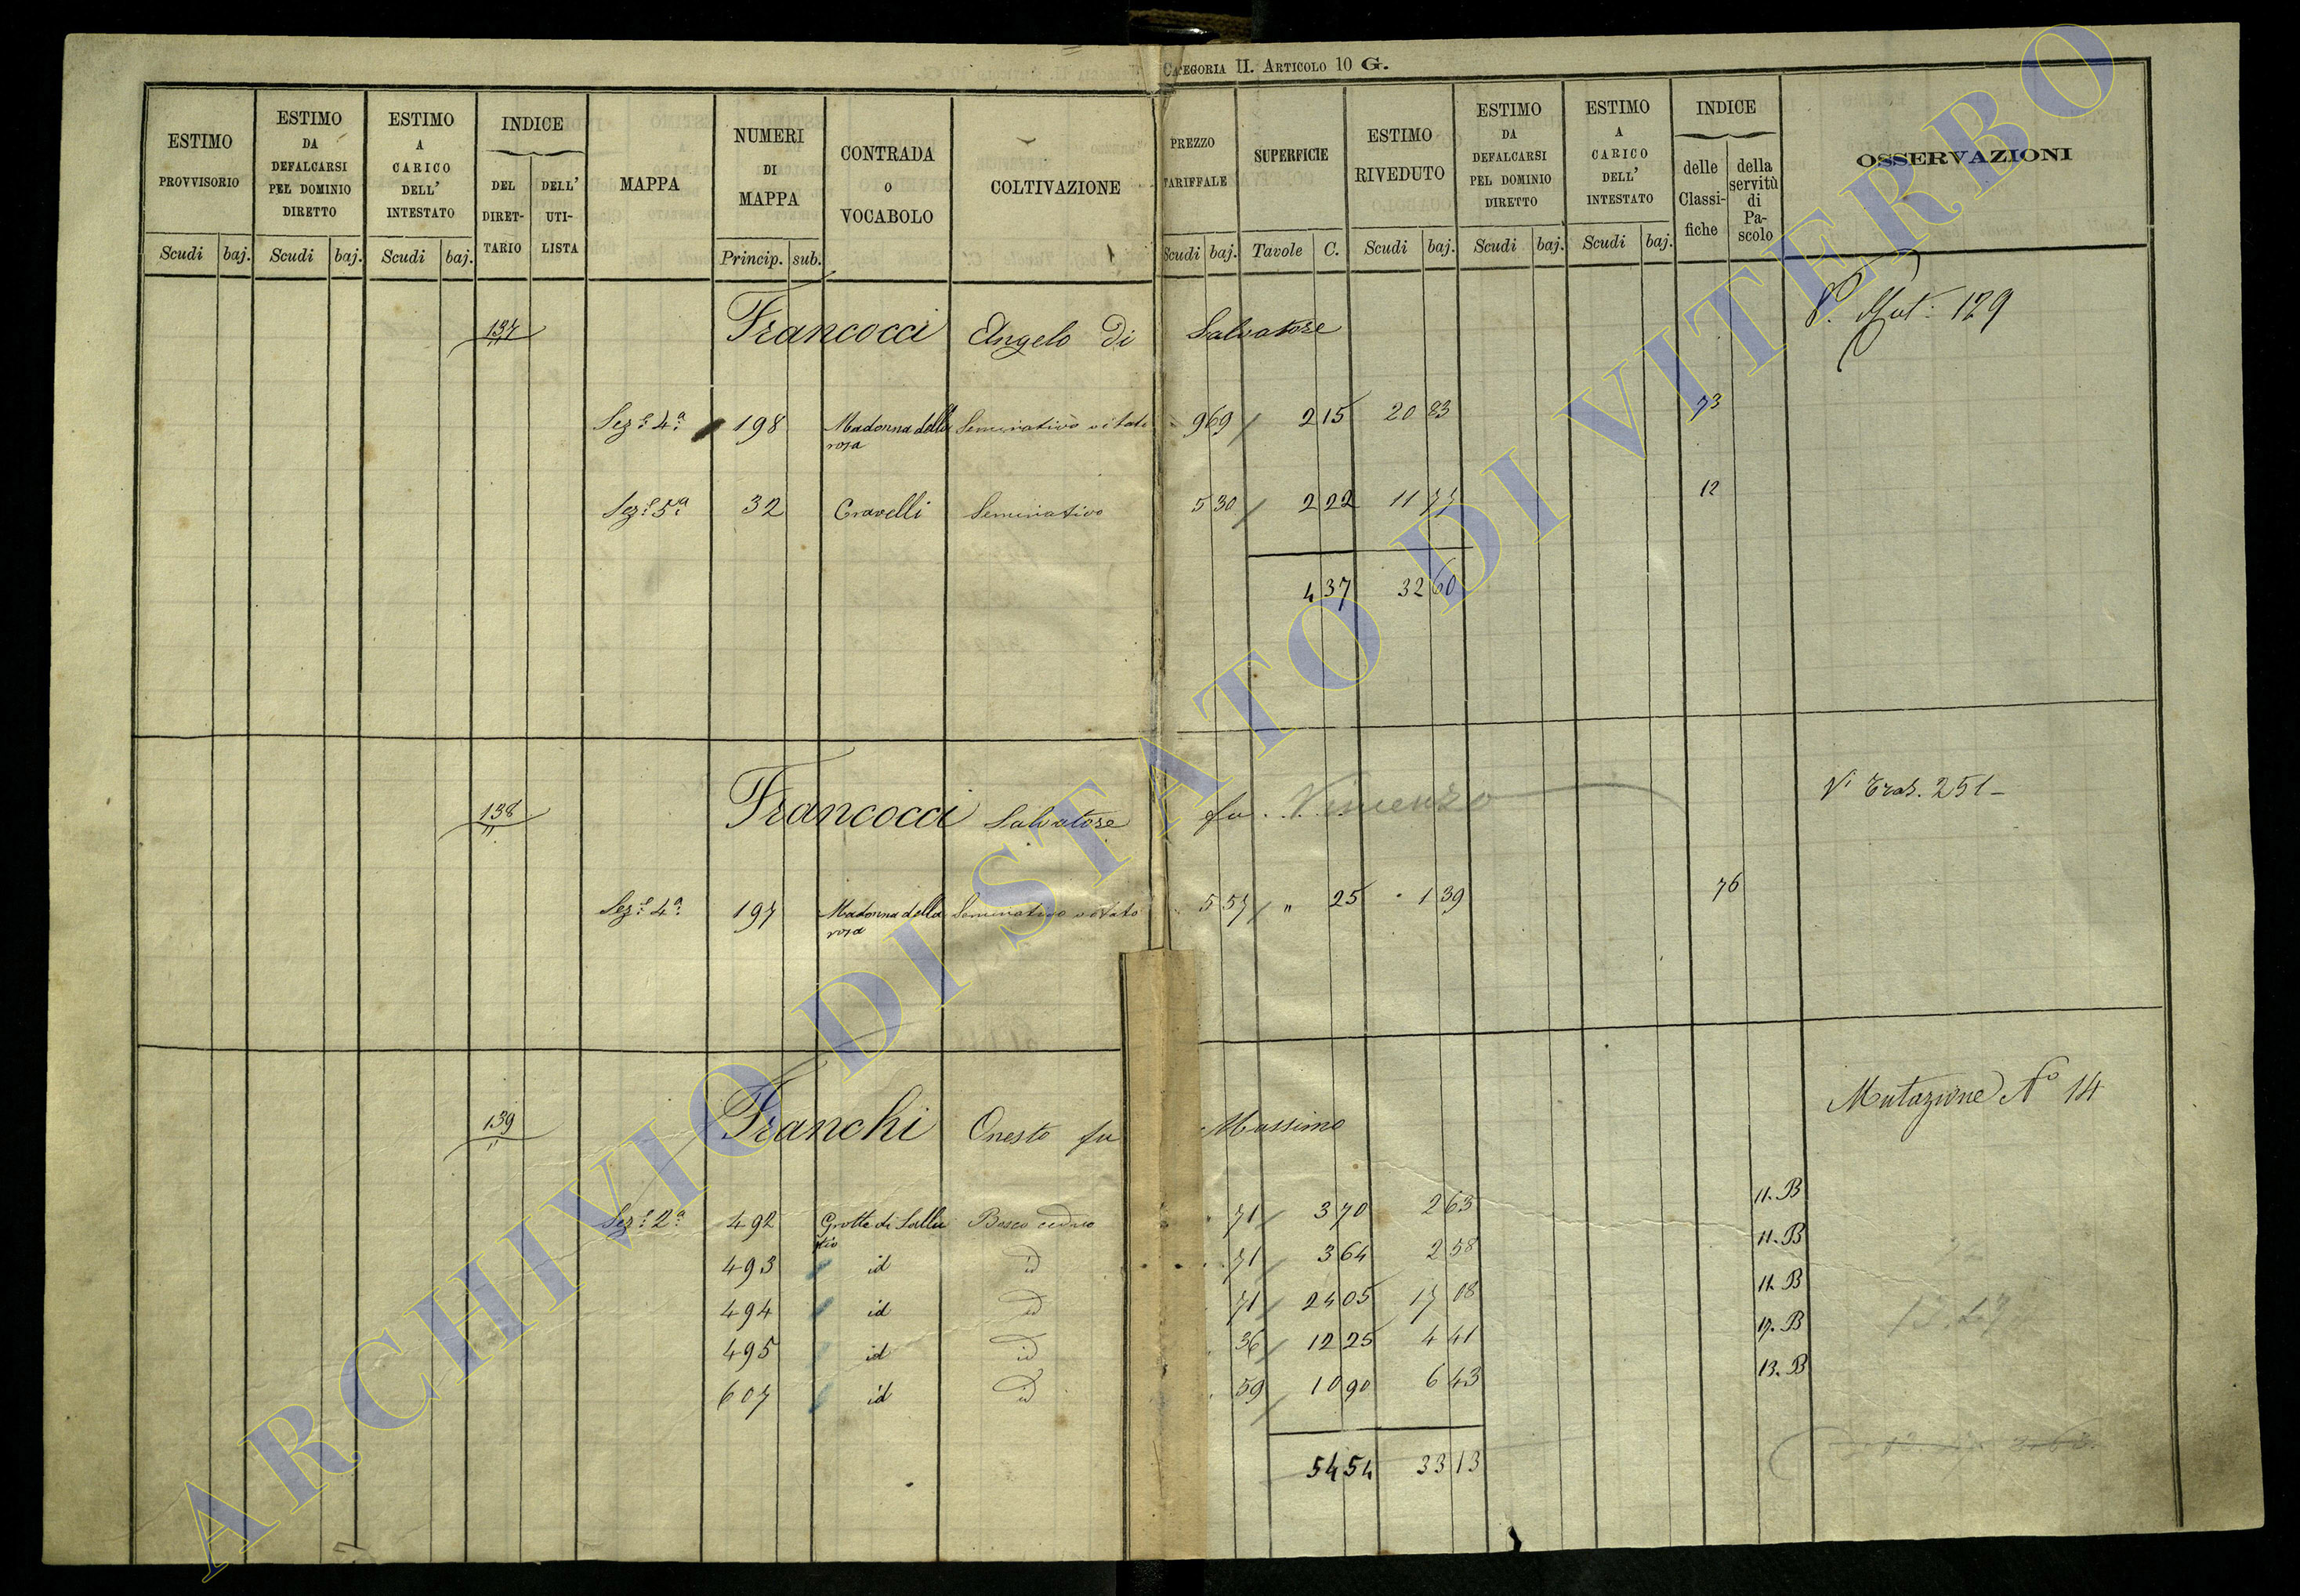 CATEGORIA II. ARTICOLO 10 G.
ESTIMO PROVVISORIO
Scudi baj.
ESTIMO DA DEFALCARSI PEL DOMINIO DIRETTO
Scudi baj.
ESTIMO A CARICO DELL' INTESTATO
Scudi baj.
INDICE
DEL DIRET-TARIO
DELL' UTI-LISTA
MAPPA
NUMERI DI MAPPA
Princip. sub.
CONTRADA O VOCABOLO
COLTIVAZIONE
PREZZO TARIFFALE
Scudi baj.
SUPERFICIE
Tavole C.
ESTIMO RIVEDUTO
Scudi baj.
ESTIMO DA DEFALCARSI PEL DOMINIO DIRETTO
Scudi baj.
ESTIMO A CARICO DELL' INTESTATO
Scudi baj.
INDICE
delle Classi-fiche
della servitù di Pa-scolo
OSSERVAZIONI
137 Francocci Angelo di Salvatore 129
Sez.e 4a 198 Madonna della Seminativo vitato 9 69 2 15 20 83 73
rosa
Sez.e 5a 32 Cravelli Seminativo 5 30 2 22 11 77 12
4 37 32 60
138 Francocci Salvatore fu Vincenzo Vi Tras. 251
Sez.e 4a 197 Madonna della Seminativo vitato 5 57 " 25 1 39 76
rosa
139 Franchi Onesto fu Massimo Mutazione No 14
Sez.e 2a 492 Grotte di Sallu Bosco ceduo 71 3 70 2 63 11. B
stio
493 id id 71 3 64 2 58 11. B
494 id id 71 24 05 17 08 11. B
495 id id 36 12 25 4 41 17. B
607 id id 59 10 90 6 43 13. B
54 54 33 13
ARCHIVIO DI STATO DI VITERBO